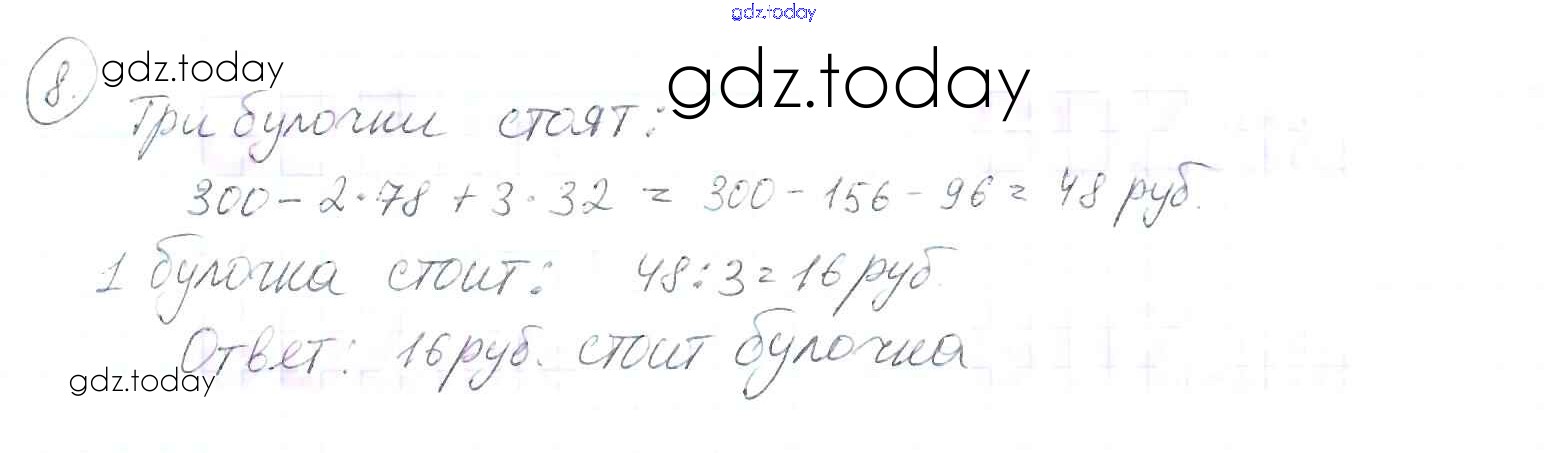 gdz.today
8. gdz.today
gdz.today
Три булочки стоят:
300 - 2 · 78 + 3 · 32 = 300 - 156 - 96 = 48 руб.
1 булочка стоит: 48 : 3 = 16 руб.
Ответ: 16 руб. стоит булочка
gdz.today